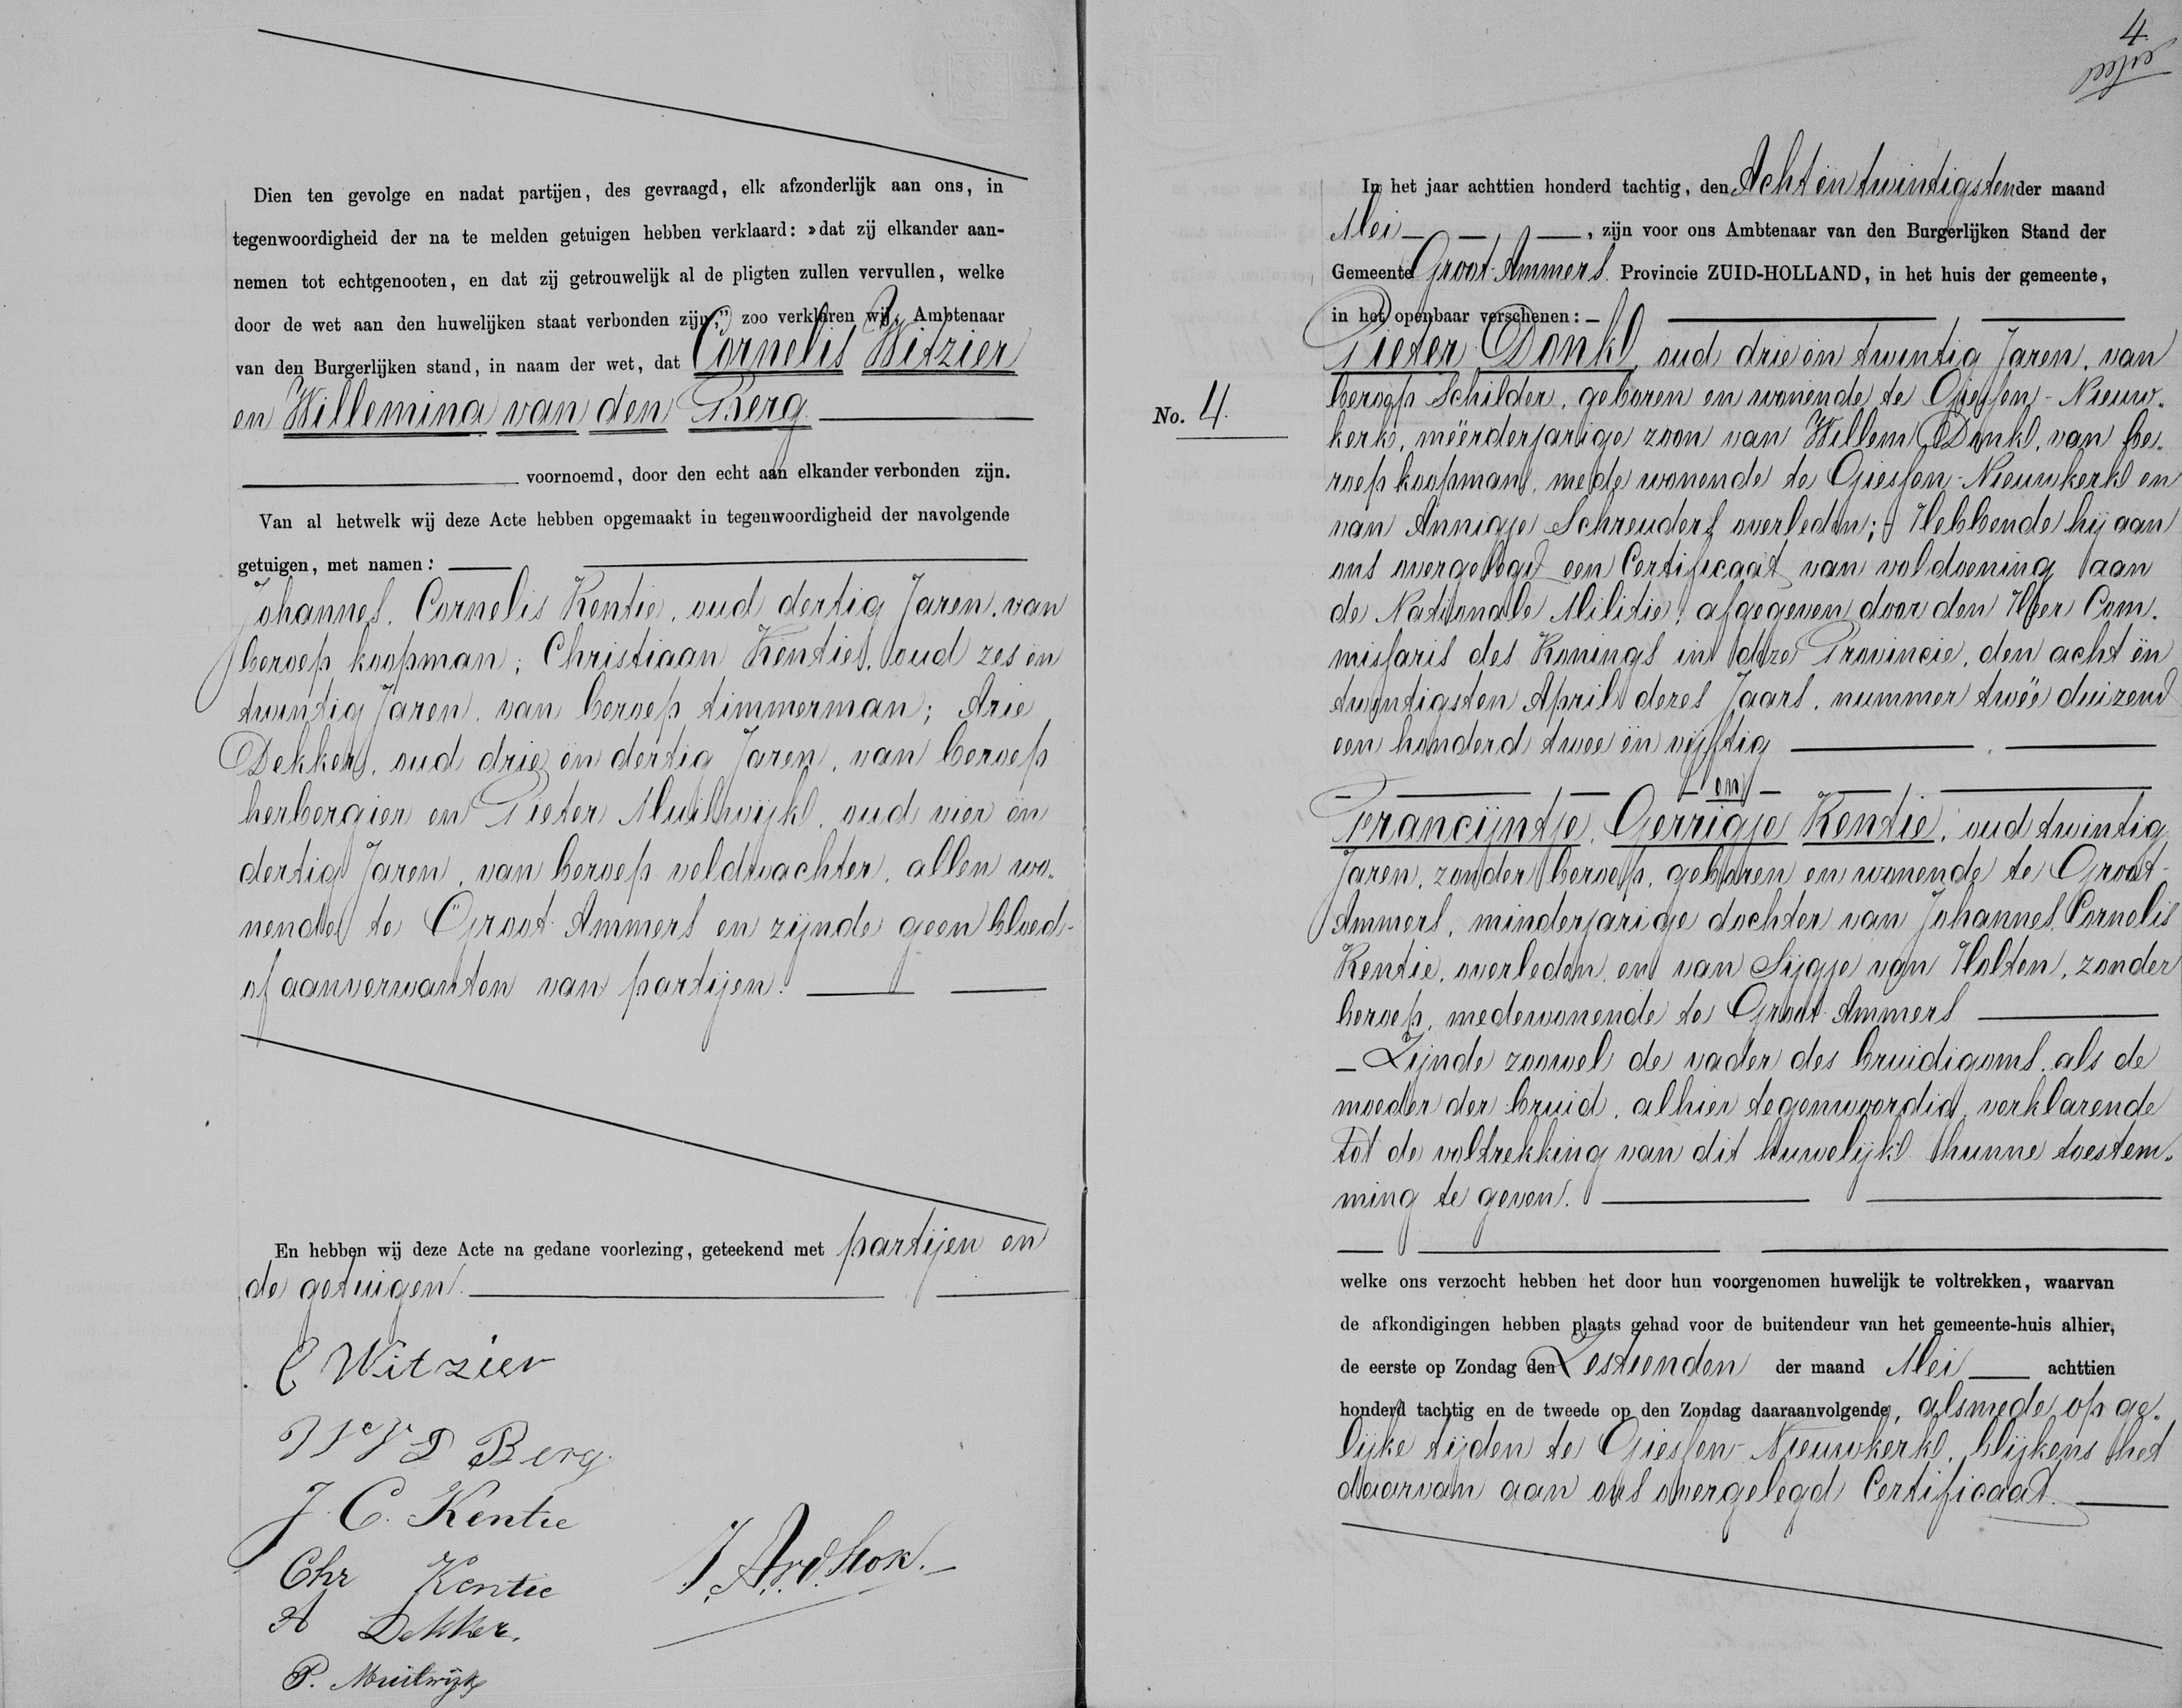 Dien ten gevolge en nadat partijen, des gevraagd, elk afzonderlijk aan ons, in
tegenwoordigheid der na te melden getuigen hebben verklaard: »dat zij elkander aan-
nemen tot echtgenooten, en dat zij getrouwelijk al de pligten zullen vervullen, welke
door de wet aan den huwelijken staat verbonden zijn;" zoo verklaren wij, Ambtenaar
van den Burgerlijken stand, in naam der wet, dat Cornelis Witzier
en Willemina van den Berg
voornoemd, door den echt aan elkander verbonden zijn.
Van al hetwelk wij deze Acte hebben opgemaakt in tegenwoordigheid der navolgende
getuigen, met namen:
Johannes, Cornelis Kentie, oud dertig Jaren, van
beroep koopman; Christiaan Kentie, oud zes ën
twintig Jaren, van beroep timmerman; Arie
Dekker, oud drie ën dertig Jaren, van beroep
herbergier en Pieter Muilwijk, oud vier ën
dertig Jaren, van beroep veldwachter, allen wo-
nende te Groot-Ammers en zijnde geen bloed-
of aanverwanten van partijen.
En hebben wij deze Acte na gedane voorlezing, geteekend met partijen en
de getuigen.
C Witzier
W V D Berg
J. C. Kentie
Chr Kentie
A Dekker.
P. Muilwijk
4
No. 4.
In het jaar achttien honderd tachtig, den Acht ën twintigsten der maand
Mei, zijn voor ons Ambtenaar van den Burgerlijken Stand der
Gemeente Groot-Ammers. Provincie ZUID-HOLLAND, in het huis der gemeente,
in het openbaar verschenen:
Pieter Donk, oud drie ën twintig Jaren, van
beroep Schilder, geboren en wonende te Giessen-Nieuw-
kerk, mëerderjarige zoon van Willem Donk, van be-
roep koopman, mede wonende te Giessen-Nieuwkerk en
van Annigje Schreuders overleden; Hebbende hij aan
ons overgelegd een Certificaat van voldoening aan
de Nationale Militie, afgegeven door den Heer Com-
missaris des Konings in deze Provincie, den acht ën
twintigsten April dezes Jaars, nummer twëe duizend
een honderd twee ën vijftig
en
Francijntje, Gerrigje Kentie, oud twintig
Jaren, zonder beroep, geboren en wonende te Groot-
Ammers, minderjarige dochter van Johannes Cornelis
Kentie, overleden, en van Sijgje van Holten, zonder
beroep, medewonende te Groot-Ammers
Zijnde zoowel de vader des bruidigoms, als de
moeder der bruid, alhier tegenwoordig, verklarende
tot de voltrekking van dit huwelijk hunne toestem-
ming te geven.
welke ons verzocht hebben het door hun voorgenomen huwelijk te voltrekken, waarvan
de afkondigingen hebben plaats gehad voor de buitendeur van het gemeente-huis alhier,
de eerste op Zondag den Zestienden der maand Mei achttien
honderd tachtig en de tweede op den Zondag daaraanvolgende, alsmede op ge-
lijke tijden te Giessen-Nieuwkerk, blijkens het
daarvan aan ons overgelegd Certificaat.